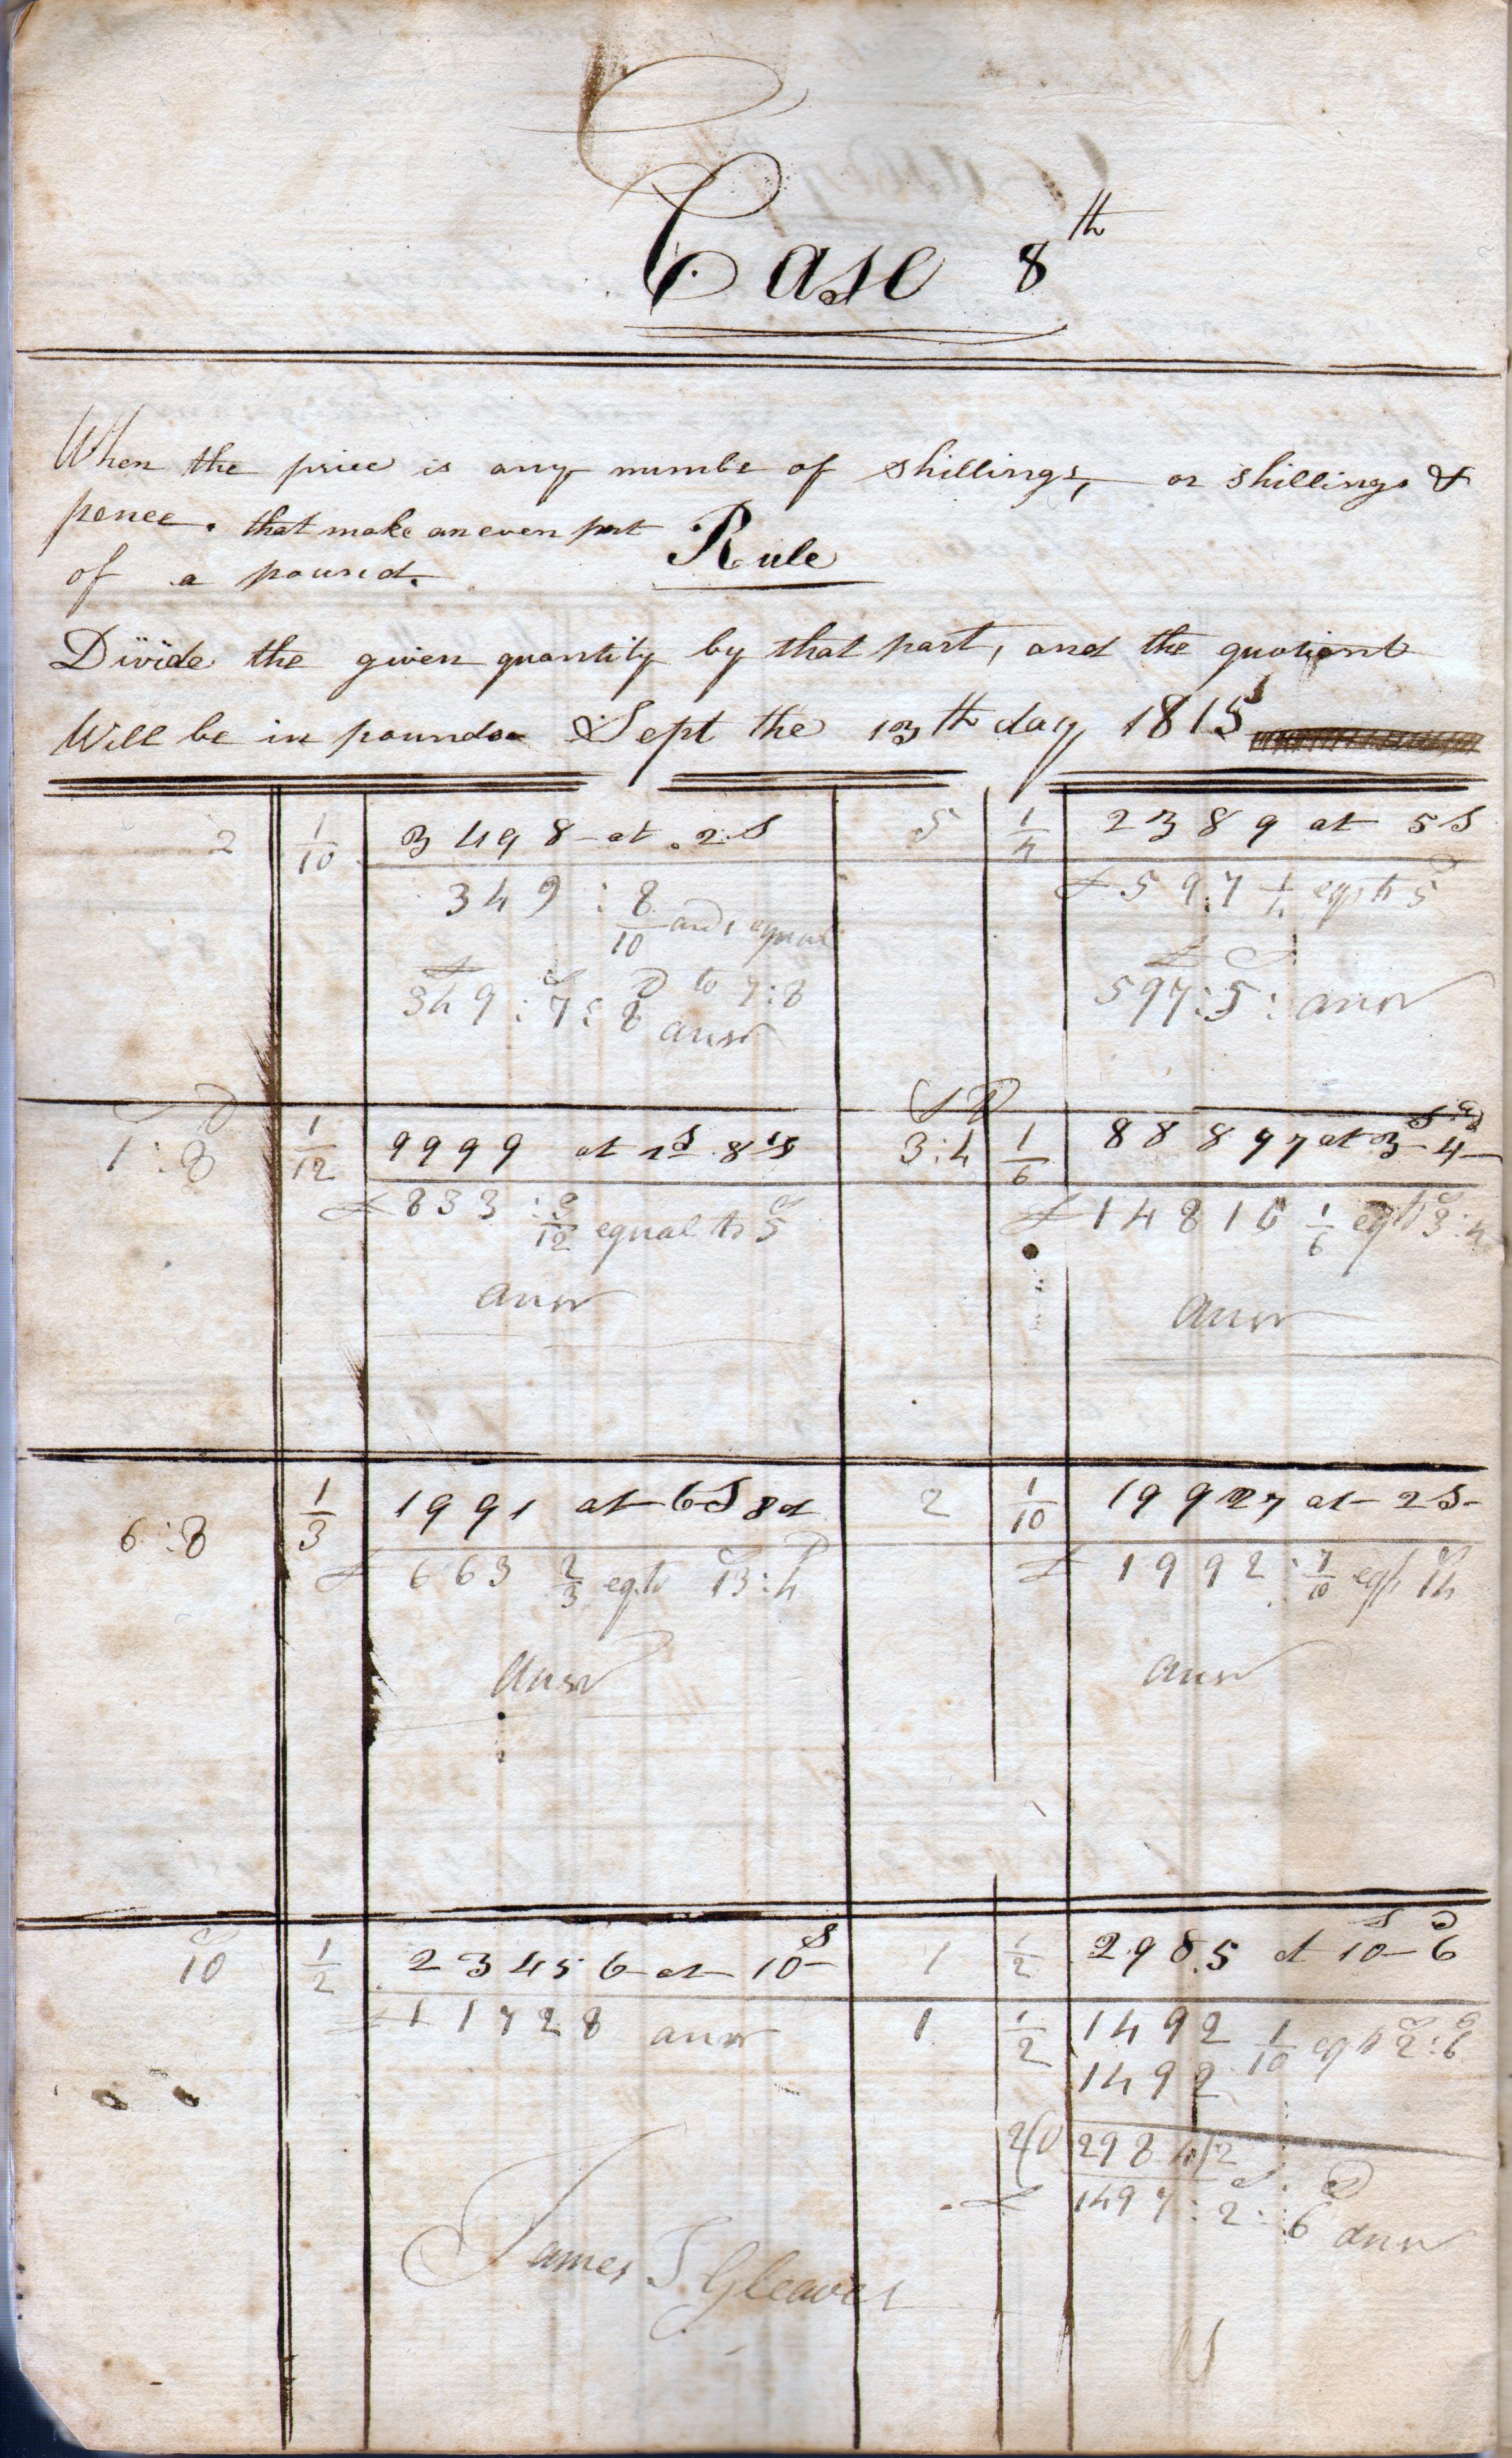 Case 8th
When the price is any numbe of shillings, or shillings &
pence. that make an even part
of a pound.
Rule
Divide the given quantity by that part, and the quotient
Will be in pounds Sept the 13th day 1815
2 1/10 3498 at 2S
349 : 8/10 and equal
to 7:8
349 : 7 : 8 answ
5 1/4 2389 at 5S
£ 597 1/4 eql to 5
£ S
597:5: answ
S D
1:8 1/12 9999 at 1S 8
£ 833 : 3/12 equal to 5
answ
S D
3:4 1/6 88897 at 3 4
£ 14816 1/6 eql to 3:4
answ
6:8 1/3 1991 at 6S 8d
£ 663 2/3 eq. to 13:4
Answ
2 1/10 19927 at 2S
£ 1992 : 7/10 eql 14
answ
10 1/2 23456 at 10S
£ 11728 answ
James S Gleaves
1 1/2 2985 at 10 6
1 1/2 1492 1/10 eql to 2:6
1492
2/0 2984/2
£ 1497 : 2 : 6 answ